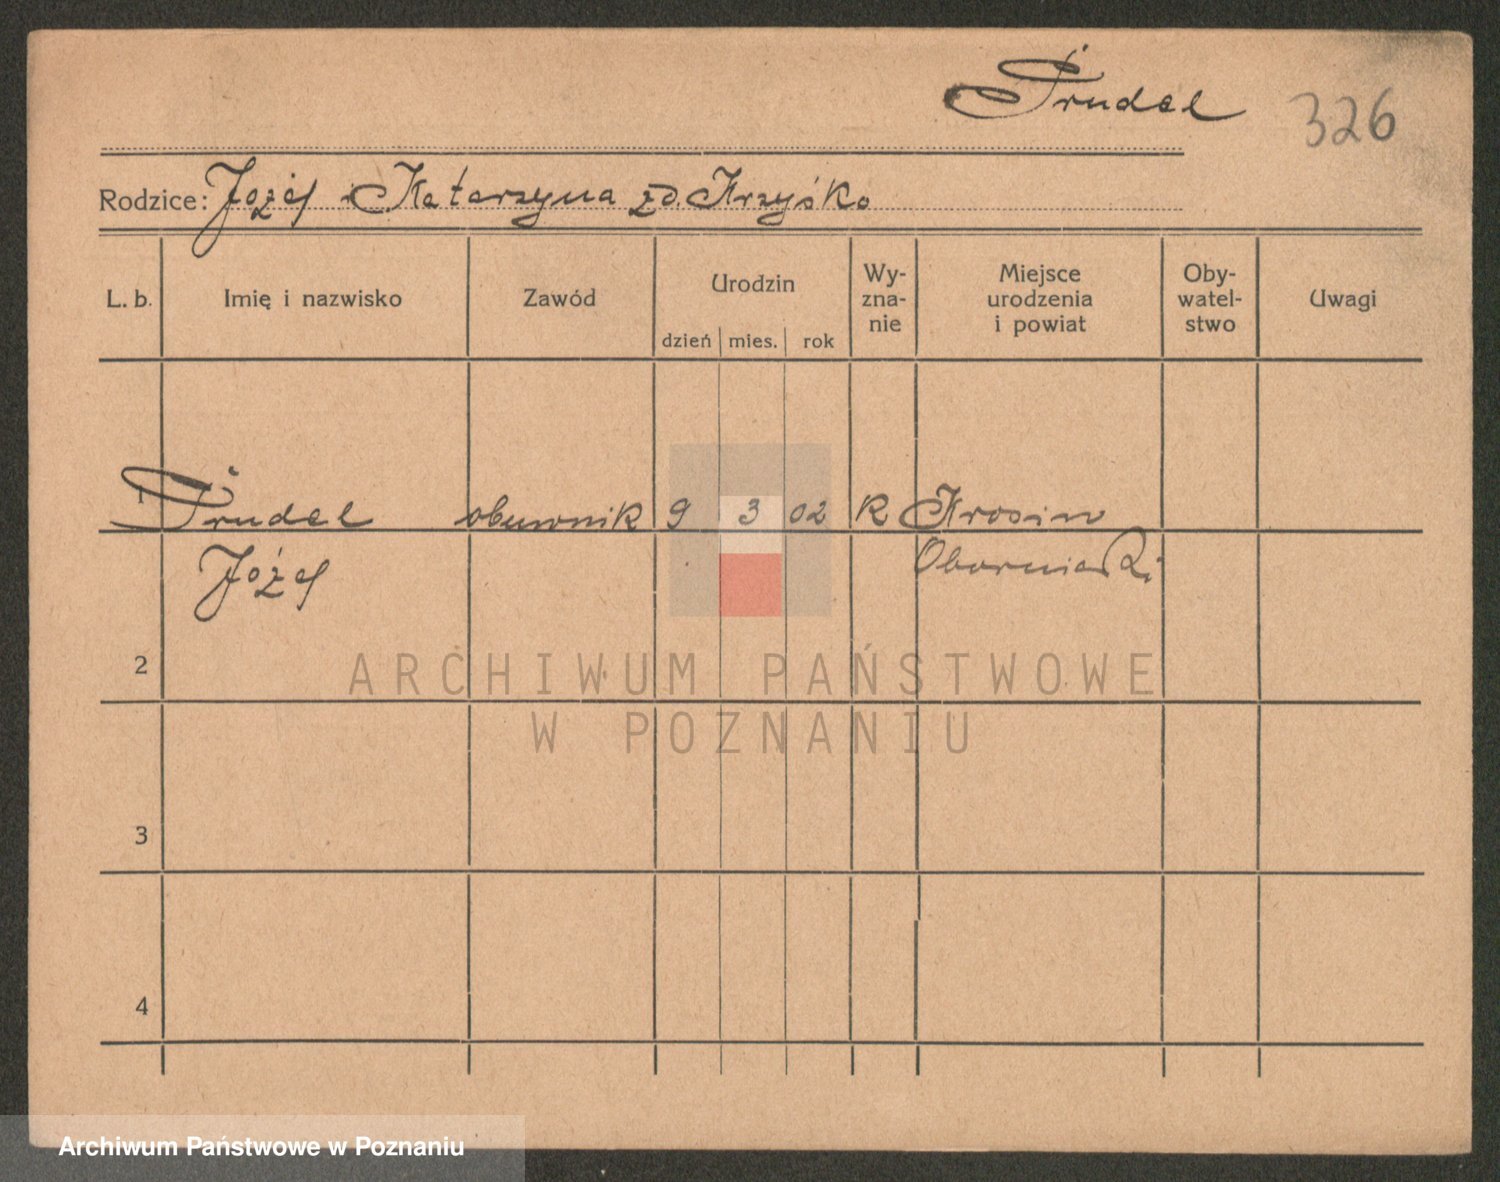 Śrudel
326
Rodzice: Józef i Katarzyna zd. Krzyśko
L. b.
Imię i nazwisko
Zawód
Urodzin
dzień
mies.
rok
Wy-
zna-
nie
Miejsce
urodzenia
i powiat
Oby-
watel-
stwo
Uwagi
1 Śrudel obuwnik 9 3 02 R Krosin
Józef Obornicki
2
ARCHIWUM PAŃSTWOWE
W POZNANIU
3
4
Archiwum Państwowe w Poznaniu